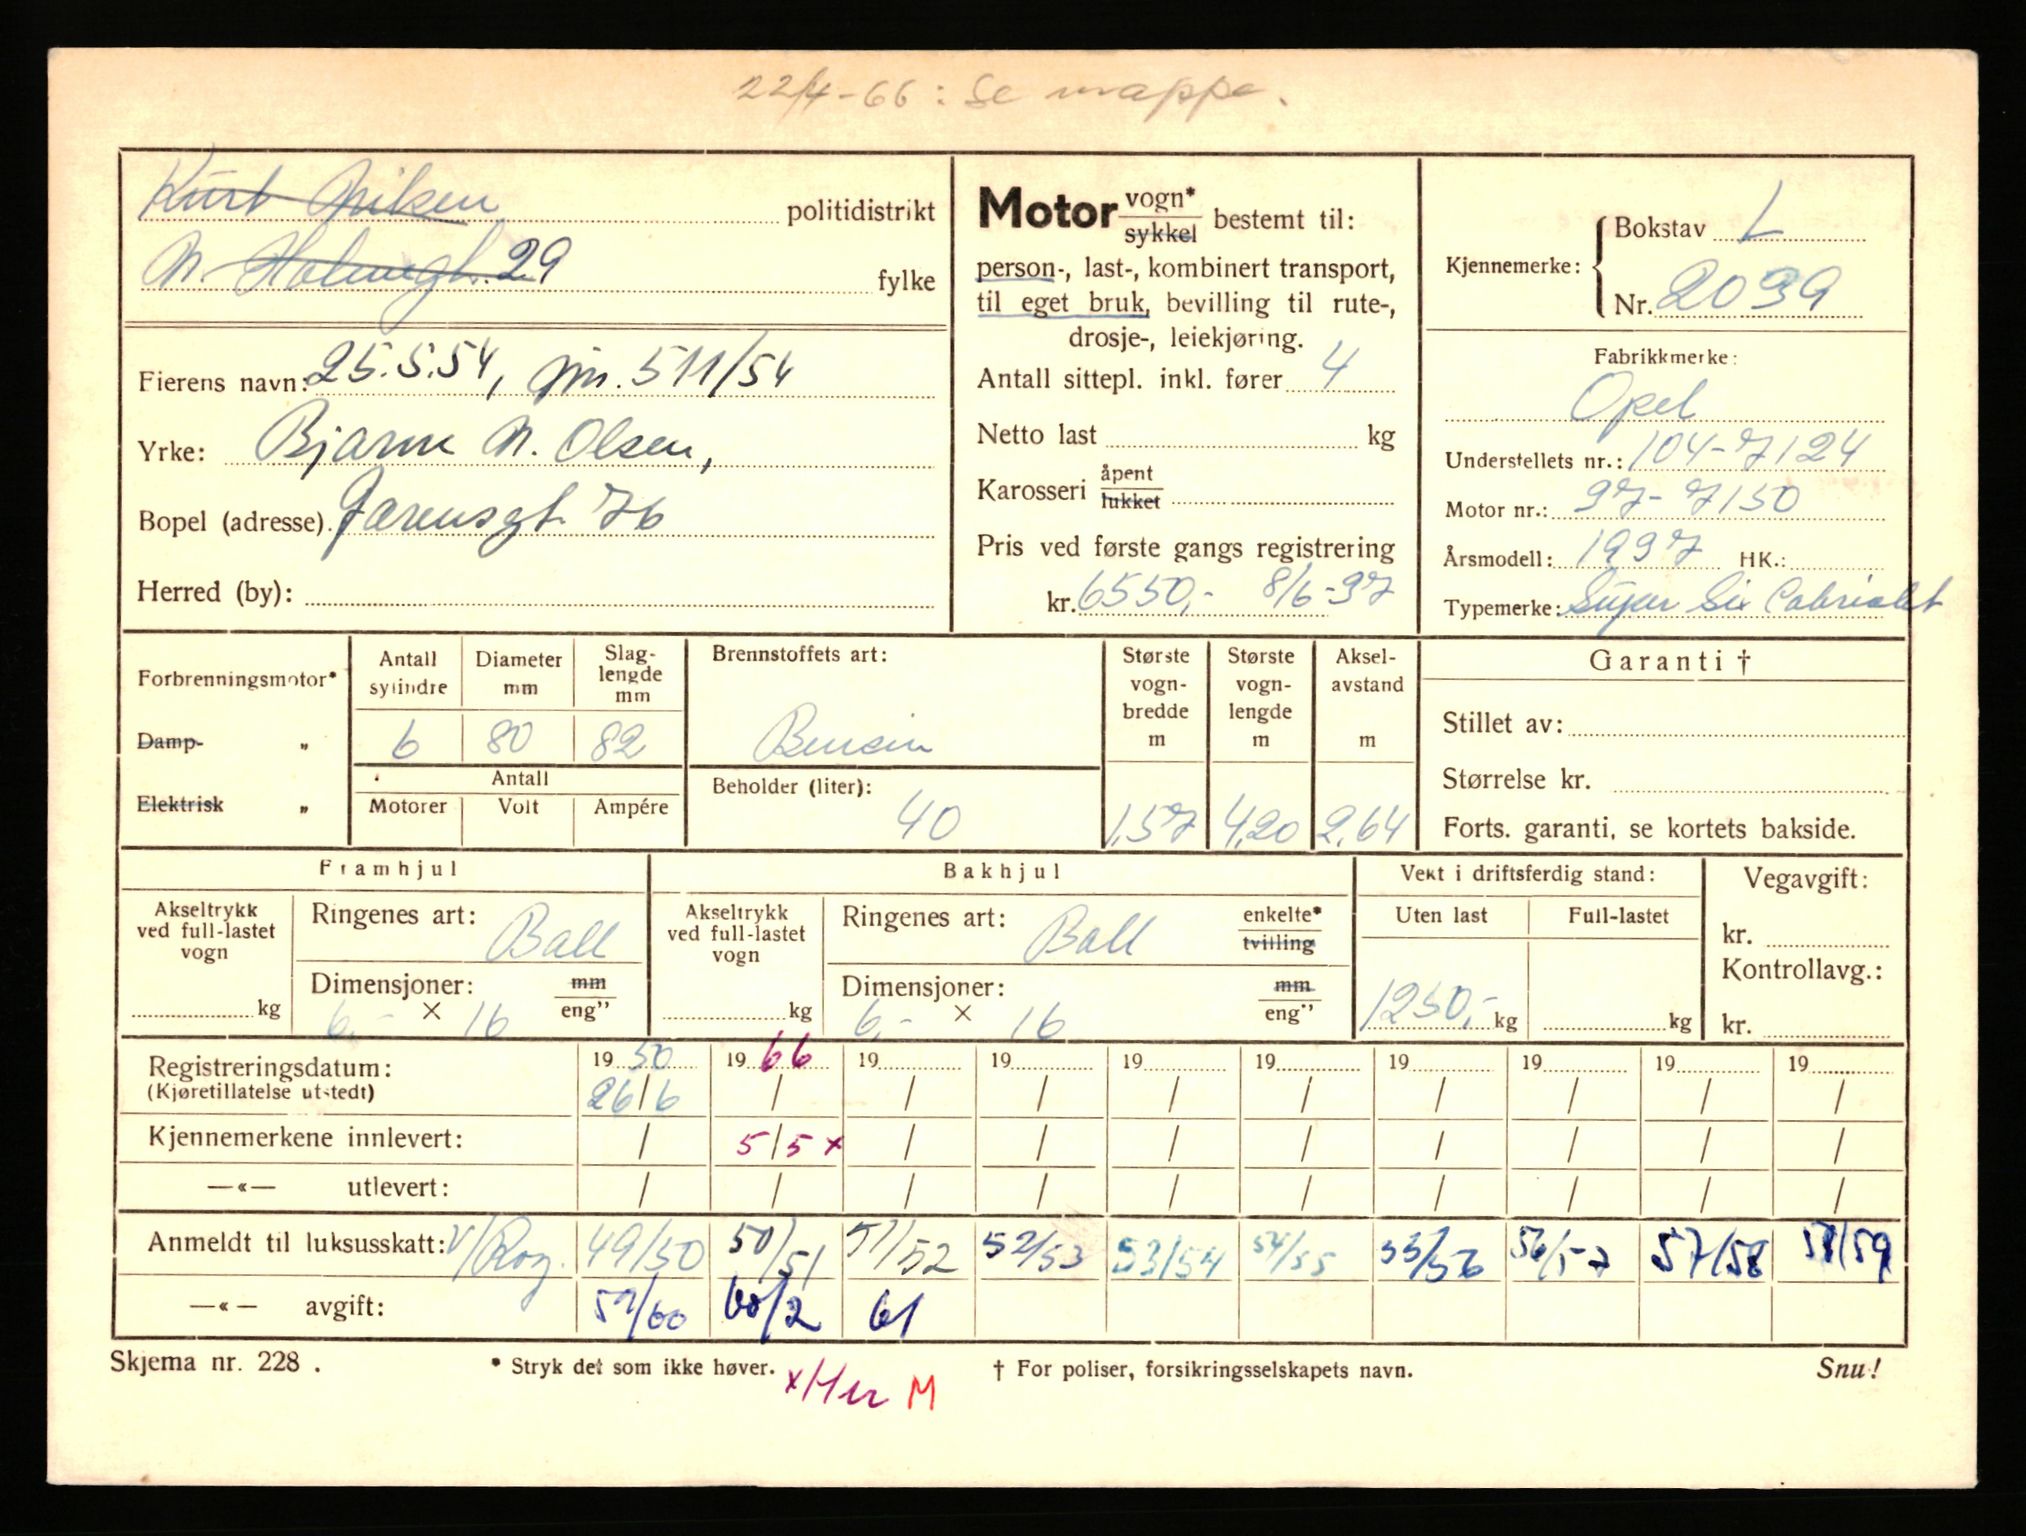 22/4-66: Se mappe.
Kurt Nilsen politidistrikt
N. Holmegt. 29 fylke
Eierens navn: 25.5.54, jnr. 511/54
Yrke: Bjarne N. Olsen,
Bopel (adresse). Jærensgt. 76
Herred (by):
Motor vogn* sykkel bestemt til:
person-, last-, kombinert transport,
til eget bruk, bevilling til rute-,
drosje-, leiekjøring.
Antall sittepl. inkl. fører 4
Netto last kg
Karosseri åpent lukket
Pris ved første gangs registrering
kr. 6550,- 8/6-37
Kjennemerke: Bokstav L
Nr. 2039
Fabrikkmerke:
Opel
Understellets nr.: 104-7124
Motor nr.: 37-7150
Årsmodell: 1937 HK.:
Typemerke: Super Six Cabriolet
Forbrenningsmotor*
Damp- „
Elektrisk „
Antall sylindre Diameter mm Slag-lengde mm
6 80 82
Antall
Motorer Volt Ampére
Brennstoffets art:
Bensin
Beholder (liter):
40
Største vogn-bredde m Største vogn-lengde m Aksel-avstand m
1,57 4,20 2,64
Garanti †
Stillet av:
Størrelse kr.
Forts. garanti, se kortets bakside.
Framhjul
Akseltrykk ved full-lastet vogn
kg
Ringenes art: Ball
Dimensjoner: mm eng”
6,- × 16
Bakhjul
Akseltrykk ved full-lastet vogn
kg
Ringenes art: Ball enkelte* tvilling
Dimensjoner: mm eng”
6,- × 16
Vekt i driftsferdig stand:
Uten last Full-lastet
1250,- kg kg
Vegavgift:
kr.
Kontrollavg.:
kr.
Registreringsdatum: 1950 1966 19 19 19 19 19 19 19 19
(Kjøretillatelse utstedt) 26/6 / / / / / / / / /
Kjennemerkene innlevert: / 5/5 x / / / / / / / /
—«— utlevert: / / / / / / / / / /
Anmeldt til luksusskatt: v/Rog. 49/50 50/51 51/52 52/53 53/54 54/55 55/56 56/57 57/58 58/59
—«— avgift: 59/60 60/2 61
Skjema nr. 228 . * Stryk det som ikke høver. † For poliser, forsikringsselskapets navn. Snu!
M